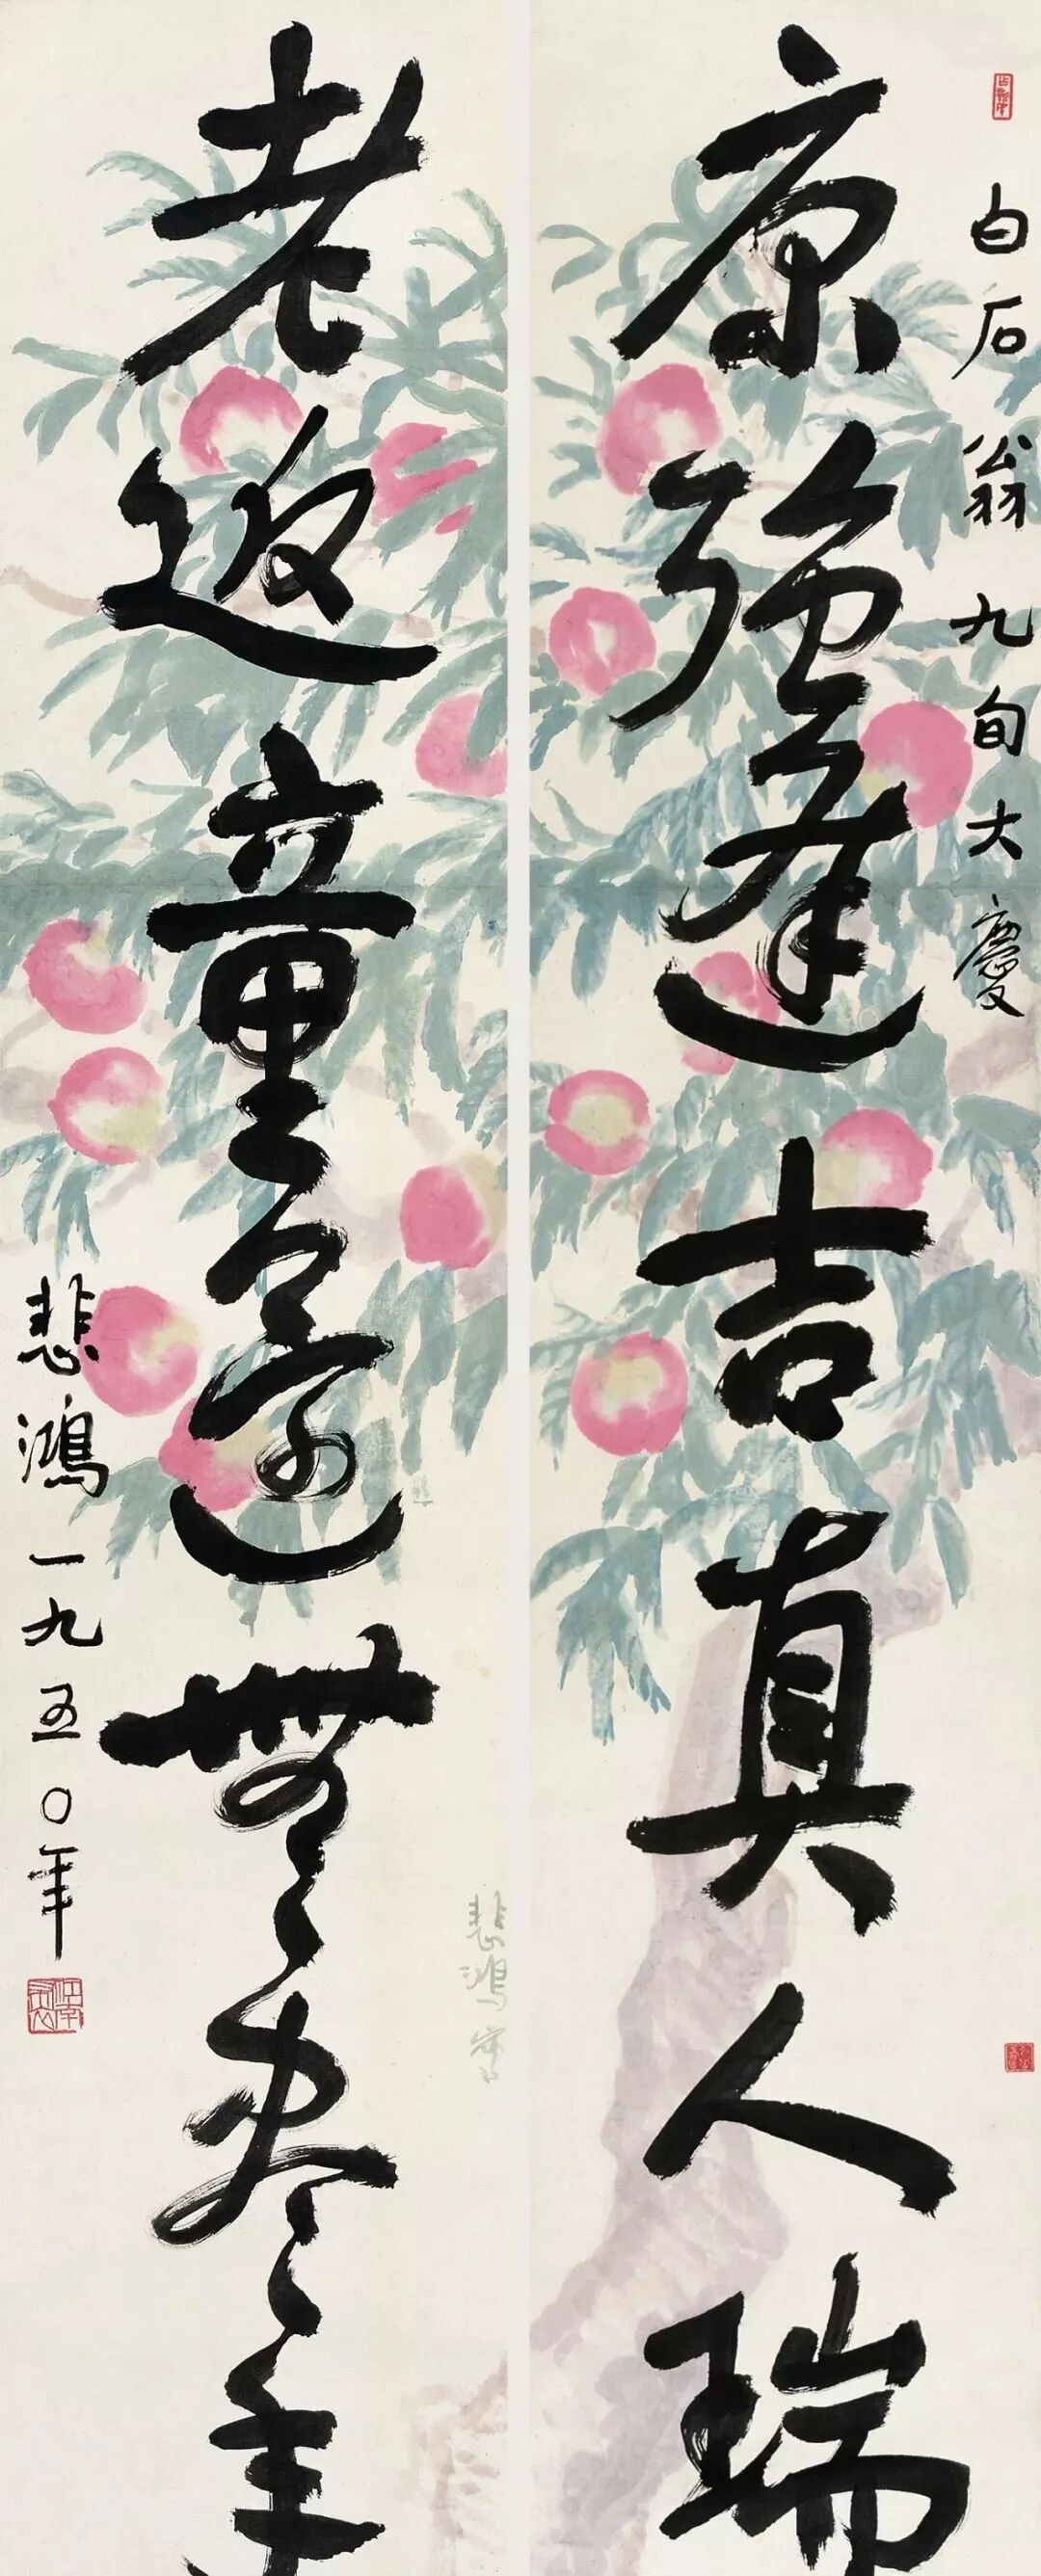 白石翁九旬大慶
康強逢吉真人瑞
老返童無盡年
悲鴻一九五〇年
悲鴻寫